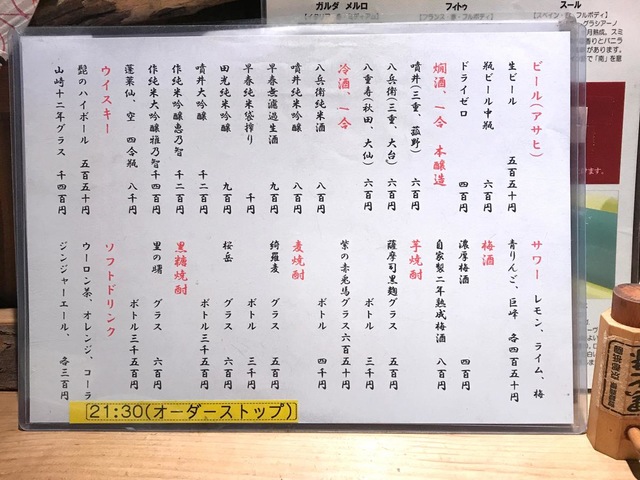 ビール(アサヒ)
生ビール 五百五十円
瓶ビール中瓶 六百円
ドライゼロ 四百円
燗酒、一合 本醸造
噴井(三重、菰野) 六百円
八兵衛(三重、大台) 六百円
八重寿(秋田、大仙) 六百円
冷酒、一合
八兵衛純米酒 八百円
噴井純米吟醸 八百円
早春無濾過生酒 九百円
早春純米袋搾り 千円
田光純米吟醸 九百円
噴井大吟醸 千二百円
作純米吟醸恵乃智 千二百円
作純米大吟醸雅乃智 千四百円
蓬莱仙、空 四合瓶 八千円
ウイスキー
艶のハイボール 五百五十円
山崎十二年グラス 千四百円
サワー レモン、ライム、梅
青りんご、巨峰 各四百五十円
梅酒
濃厚梅酒 四百円
自家製二年熟成梅酒 八百円
芋焼酎
薩摩司黒麹グラス 五百円
ボトル 三千円
紫の赤兎馬グラス六百五十円
ボトル 四千円
麦焼酎
綺羅麦 グラス 五百円
ボトル 三千円
桜岳 グラス 六百円
ボトル 三千五百円
黒糖焼酎
里の曙 グラス 六百円
ボトル 三千五百円
ソフトドリンク
ウーロン茶、オレンジ、コーラ
ジンジャーエール、 各三百円
21:30(オーダーストップ)
ガルダ メルロ
フィトゥ
スール